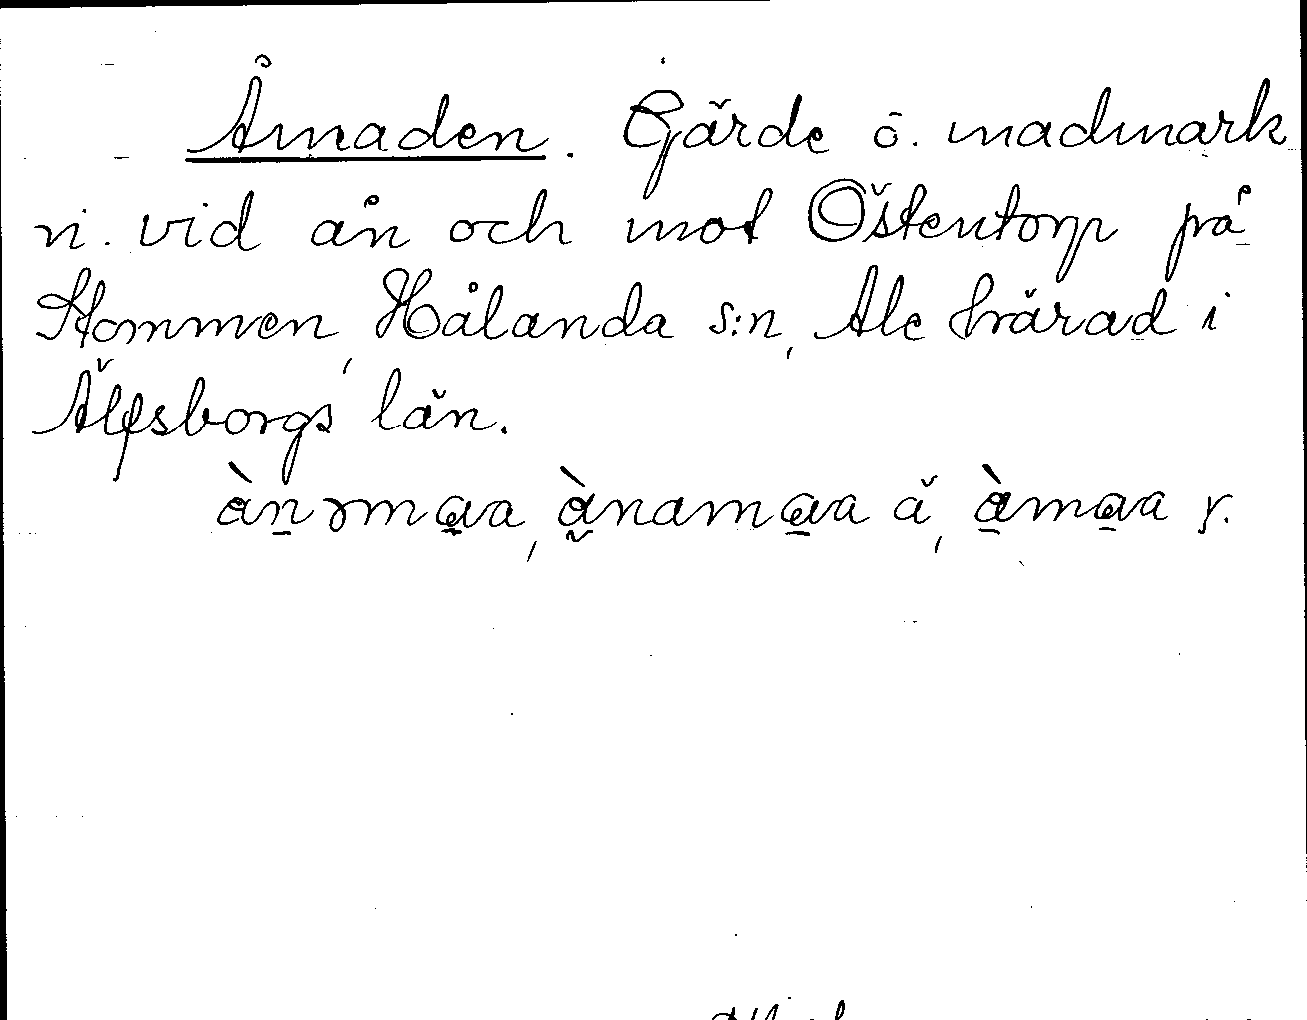 Åmaden. Gärde o. madmark
n. vid ån och mot Östentorp på
Stommen, Hålanda s:n, Ale härad i
Älfsborgs län.
ànɘmaa, ànamaa ä, àmaa y.